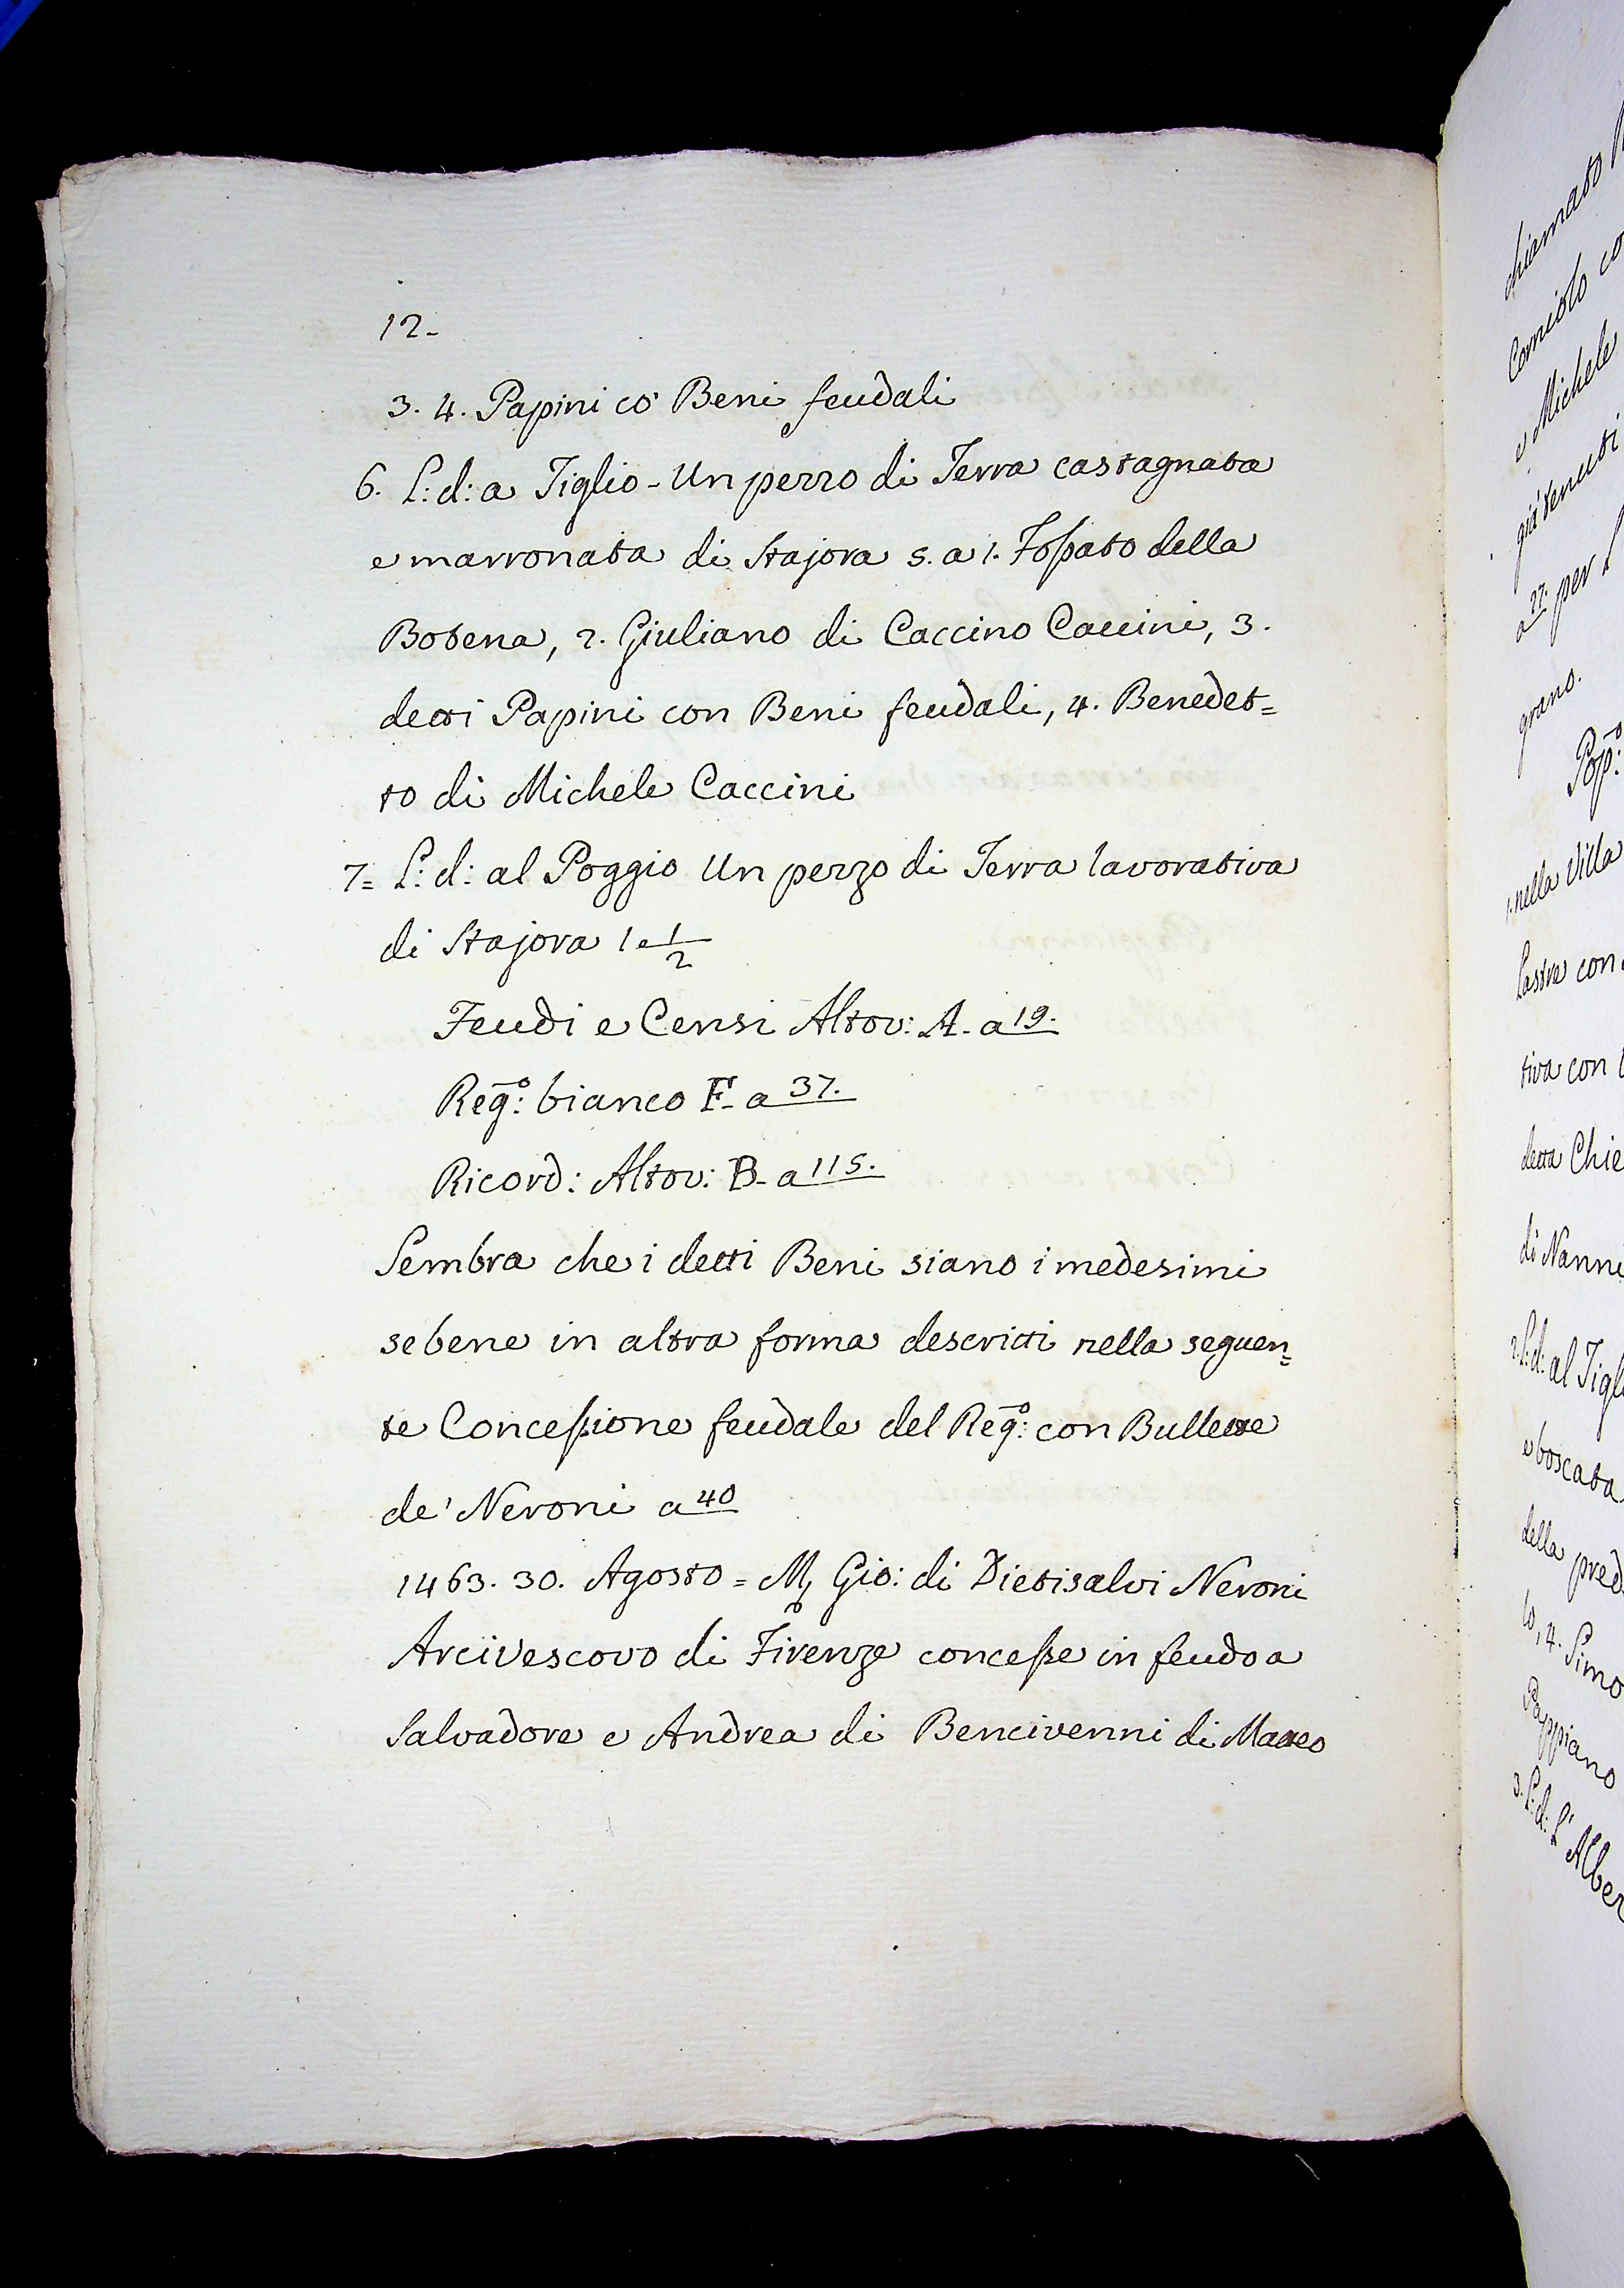 12-
3. 4. Papini co' Beni feudali
6. L: d: a Tiglio - Un pezzo di Terra castagnata
e marronata di Stajora 5. a 1. Fossato della
Botena, 2. Giuliano di Caccino Caccini, 3.
detti Papini con Beni feudali, 4. Benedet=
to di Michele Caccini
7= L: d: al Poggio Un pezzo di Terra lavorativa
di Stajora 1 e 1/2
Feudi e Censi Altov: A- a 19.
Reg:º bianco F- a 37.
Ricord: Altov: B- a 115.
Sembra che i detti Beni siano i medesimi
sebene in altra forma descritti nella seguen=
te Concessione feudale del Reg:º con Bullette
de' Neroni a 40
1463. 30. Agosto = M Gio: di Dietisalvi Neroni
Arcivescovo di Firenze concesse in feudo a
Salvadore e Andrea di Bencivenni di Matteo
chiamato
Corniolo co
e Michele
già tenuti
a 27. per
grano.
Pop:º
1. nella Villa
Lastre con
tiva con
detta Chie
di Nanni
2. L: d: al Tigl
e boscata
della pred
lo, 4. Simo
Pappiano
3. L: d: L'Alber